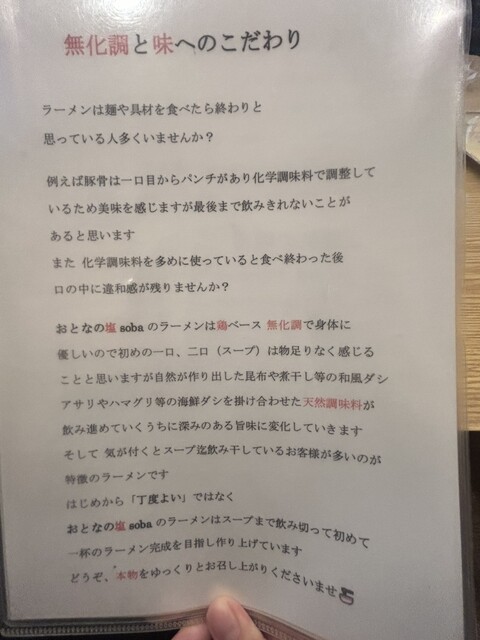 無化調と味へのこだわり
ラーメンは麺や具材を食べたら終わりと
思っている人多くいませんか？
例えば豚骨は一口目からパンチがあり化学調味料で調整して
いるため美味を感じますが最後まで飲みきれないことが
あると思います
また 化学調味料を多めに使っていると食べ終わった後
口の中に違和感が残りませんか？
おとなの塩 soba のラーメンは鶏ベース 無化調で身体に
優しいので初めの一口、二口（スープ）は物足りなく感じる
ことと思いますが自然が作り出した昆布や煮干し等の和風ダシ
アサリやハマグリ等の海鮮ダシを掛け合わせた天然調味料が
飲み進めていくうちに深みのある旨味に変化していきます
そして 気が付くとスープ迄飲み干しているお客様が多いのが
特徴のラーメンです
はじめから「丁度よい」ではなく
おとなの塩 soba のラーメンはスープまで飲み切って初めて
一杯のラーメン完成を目指し作り上げています
どうぞ、本物をゆっくりとお召し上がりくださいませ